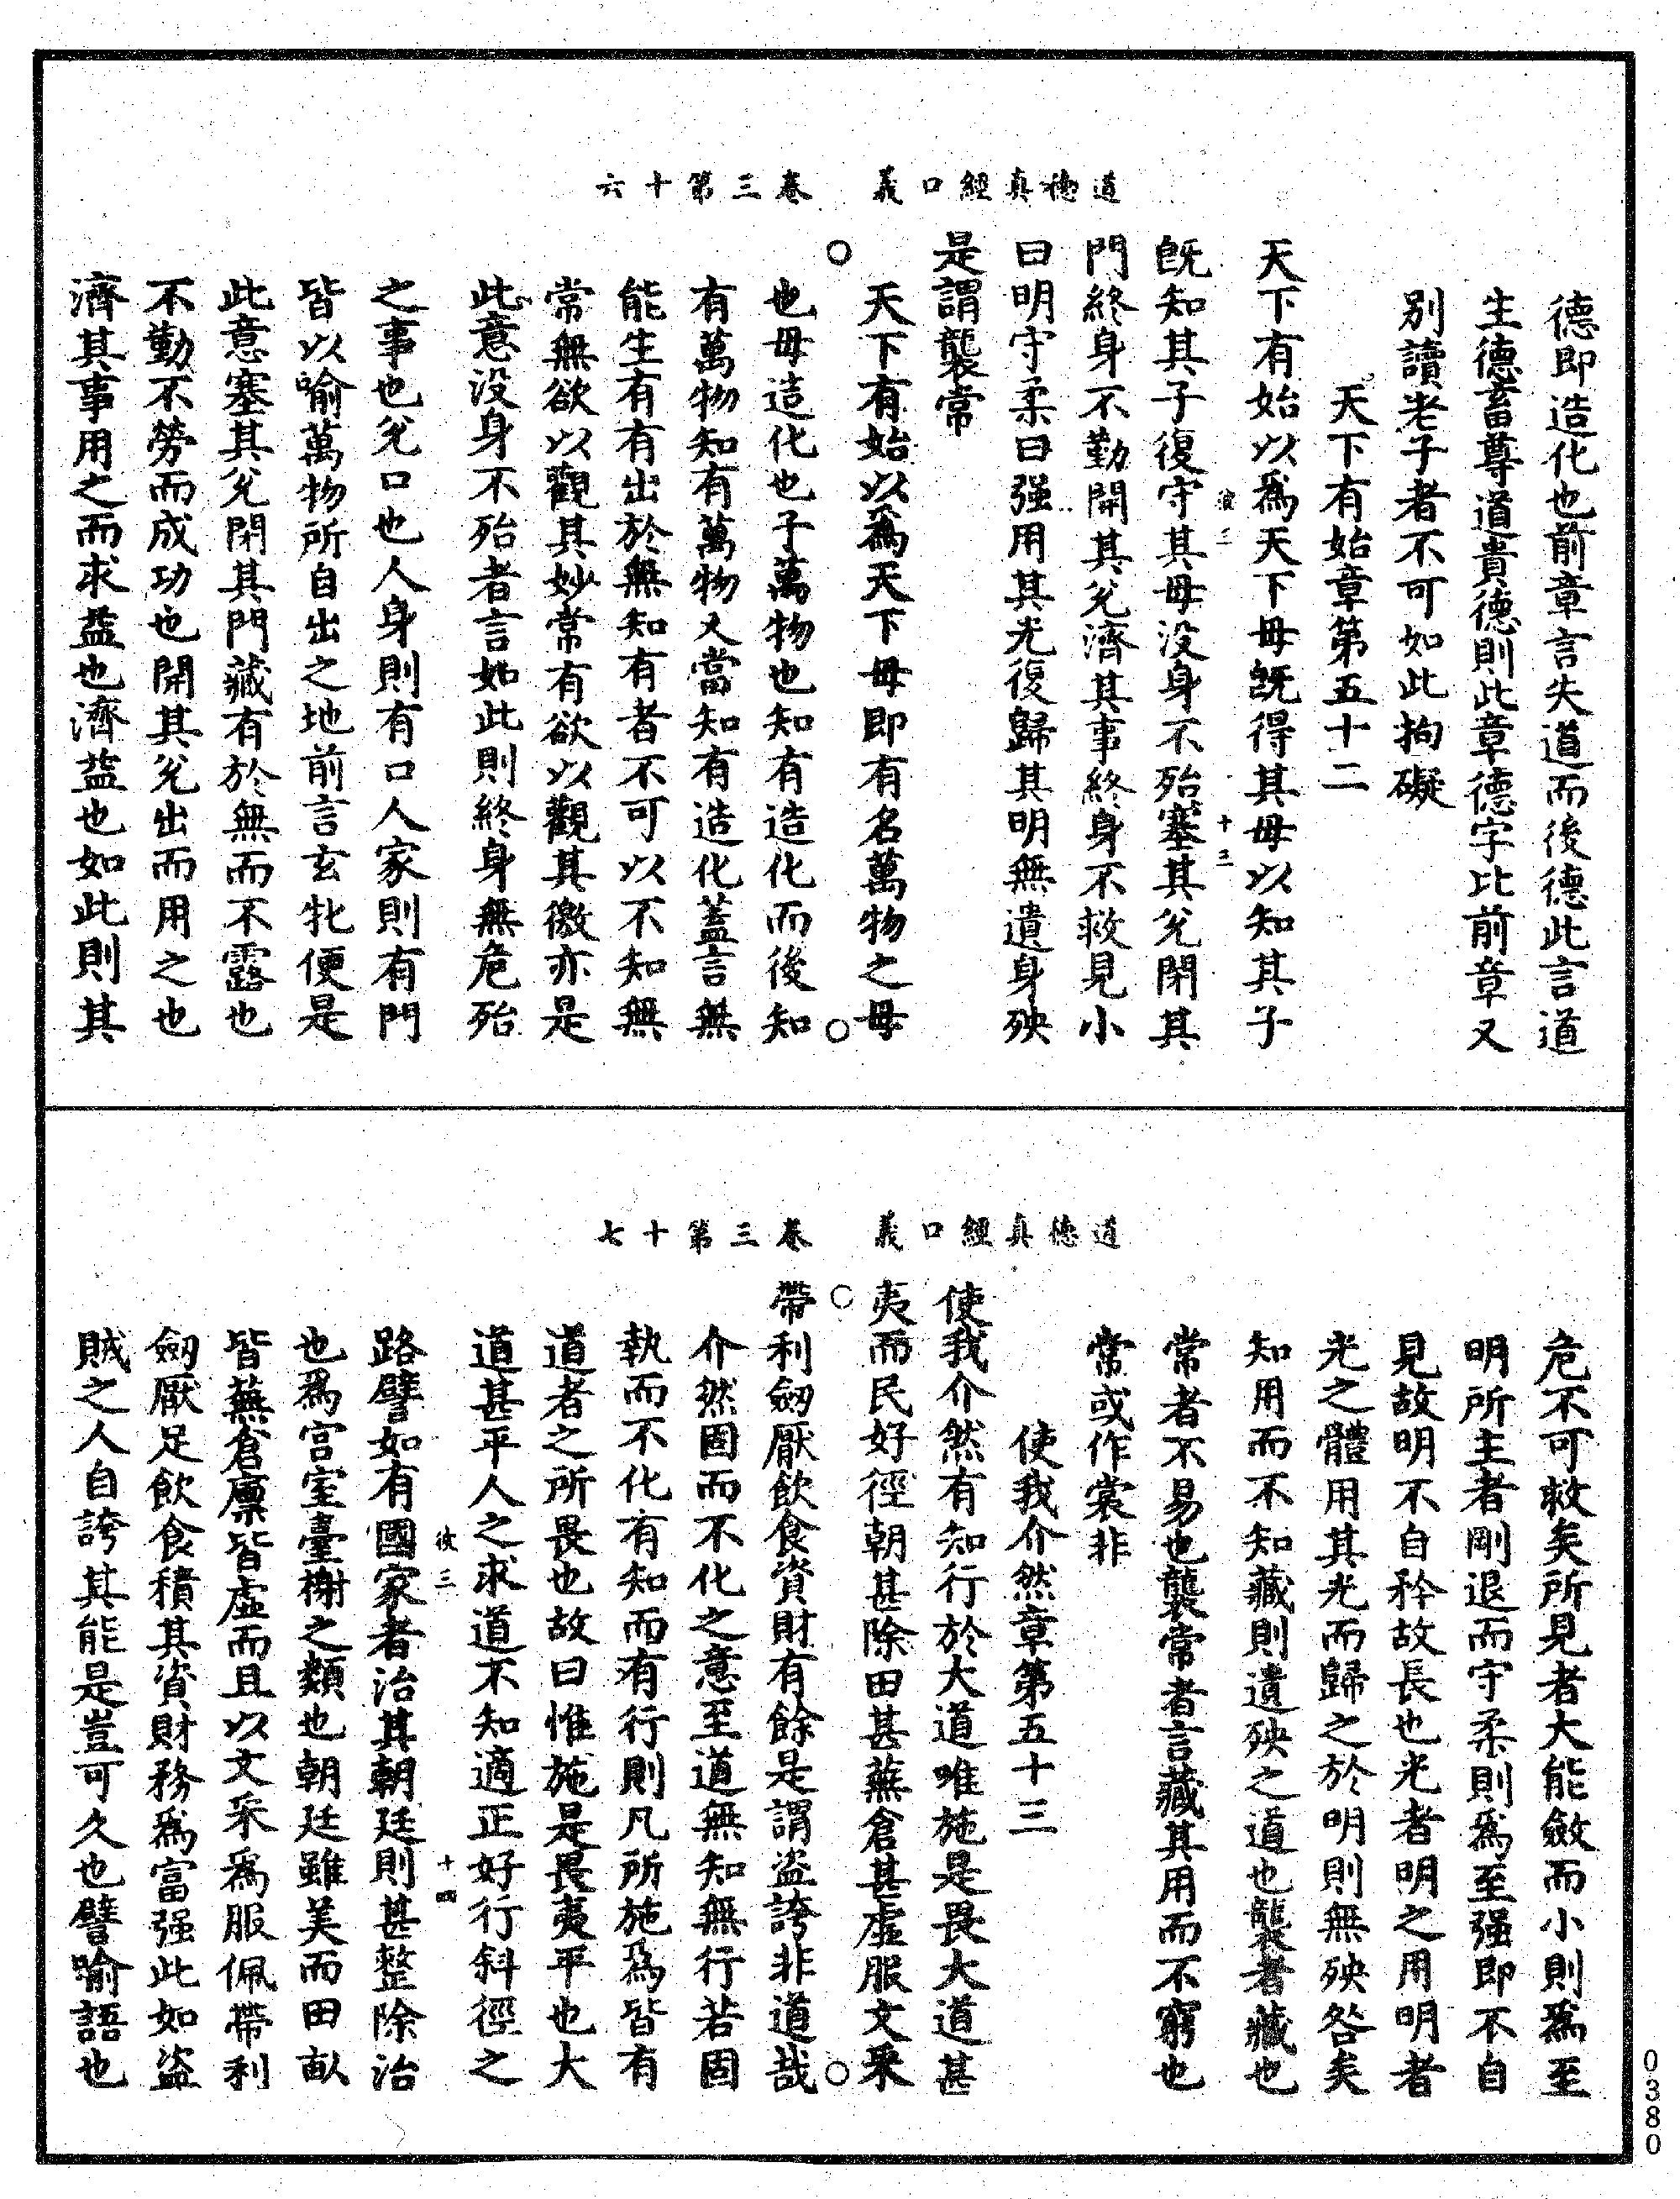 道德真經口義　卷三第十六
德即造化也前章言失道而後德此言道
生德畜尊道貴德則此章德字比前章又
別讀老子者不可如此拘礙
天下有始章第五十二
天下有始以為天下母既得其母以知其子
既知其子復守其母沒身不殆塞其兌閉其
門終身不勤開其兌濟其事終身不救見小
曰明守柔曰强用其光復歸其明無遺身殃
是謂襲常
天下有始以為天下母即有名萬物之母
也母造化也子萬物也知有造化而後知
有萬物知有萬物又當知有造化蓋言無
能生有有出於無知有者不可以不知無
常無欲以觀其妙常有欲以觀其徼亦是
此意沒身不殆者言如此則終身無危殆
之事也兌口也人身則有口人家則有門
皆以喻萬物所自出之地前言玄牝便是
此意塞其兌閉其門藏有於無而不露也
不勤不勞而成功也開其兌出而用之也
濟其事用之而求益也濟益也如此則其
三
十三
道德真經口義　卷三第十七
危不可救矣所見者大能斂而小則為至
明所主者剛退而守柔則為至强即不自
見故明不自矜故長也光者明之用明者
光之體用其光而歸之於明則無殃咎矣
知用而不知藏則遺殃之道也襲者藏也
常者不易也襲常者言藏其用而不窮也
常或作裳非
使我介然章第五十三
使我介然有知行於大道唯施是畏大道甚
夷而民好徑朝甚除田甚蕪倉甚虛服文采
帶利劒厭飲食資財有餘是謂盜誇非道哉
介然固而不化之意至道無知無行若固
執而不化有知而有行則凡所施為皆有
道者之所畏也故曰惟施是畏夷平也大
道甚平人之求道不知適正好行斜徑之
路譬如有國家者治其朝廷則甚整除治
也為宮室臺榭之類也朝廷雖美而田畝
皆蕪倉廩皆虛而且以文采為服佩帶利
劒厭足飲食積其資財務為富强此如盜
賊之人自誇其能是豈可久也譬喻語也
彼三
十四
0380